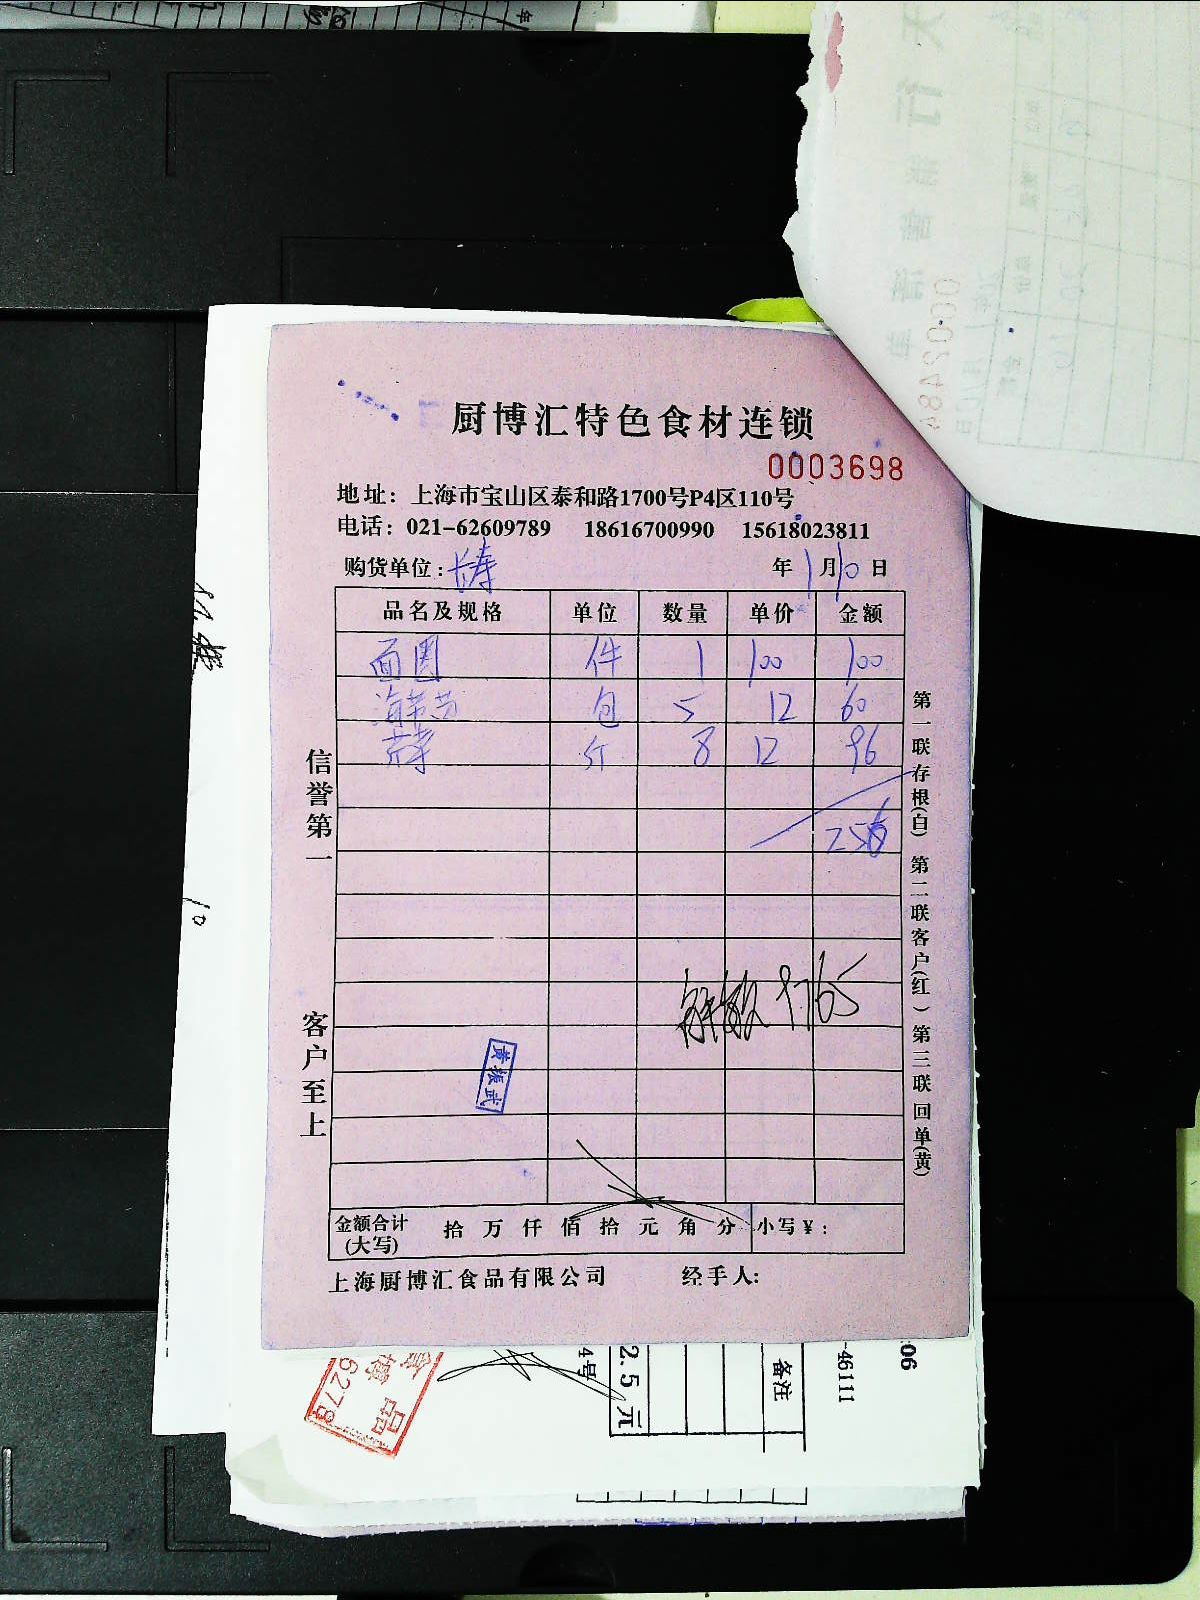 厨博汇特色食材连锁
0003698
地址：上海市宝山区泰和路1700号P4区110号
电话：021-62609789 18616700990 15618023811
购货单位： 年1月10日
品名及规格 单位 数量 单价 金额
面圆 件 1 100 100
包 5 12 60
斤 8 12 96
256
信誉第一
客户至上
第一联存根(白) 第二联客户(红) 第三联回单(黄)
黄振武
金额合计(大写) 拾 万 仟 佰 拾 元 角 分 小写￥：
上海厨博汇食品有限公司 经手人：
0002484
10
6278
4号
2.5元
备注
-46111
:06